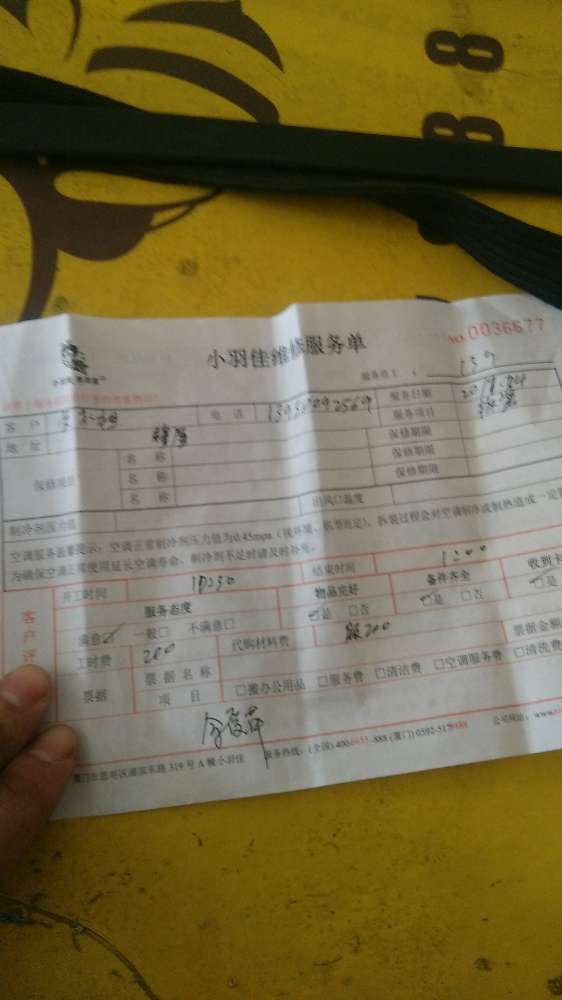 88
88
小羽佳维修服务单
NO. 0036677
服务员工: 159
客户
电话
服务日期
地址
服务项目
保修项目
名称
保修期限
名称
保修期限
名称
保修期限
制冷剂压力值
出风口温度
空调服务温馨提示:空调正常制冷剂压力值为0.45mpa(按环境、机型而定)。拆装过程会对空调制冷或制热造成一定
为确保空调正常使用延长空调寿命,制冷剂不足时请及时补充。
开工时间
结束时间
1200
客户评
服务态度
物品完好
备件齐全
收到卡
满意☑ 一般□ 不满意□
☑是 □否
☑是 □否
□是
工时费
200
代购材料费
票据金额
票据
票据名称
项目
□搬办公用品 □服务费 □清洁费 □空调服务费 □清洗费
厦门市思明区湖滨东路 319 号 A 幢小羽佳
服务热线:(全国) 4006655-888 (厦门) 0592-5179888
公司网址:www.